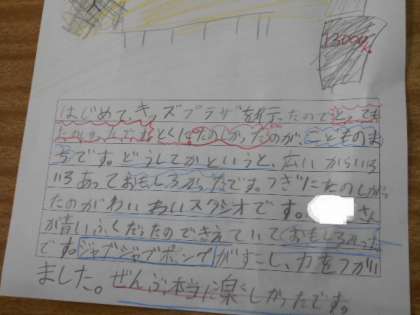 13000
はじめてキッズプラザを行ったのでとっても
たのしかったです。とくにたのしかったのが、こどものま
ちです。どうしてかというと、広いからいろ
いろあっておもしろかったです。つぎにたのしかっ
たのがわいわいスタジオです。さん
が青いふくだったのできえていておもしろかった
です。ジャブジャブポンプがすこし力をつかい
ました。ぜんぶ本当に楽しかったです。